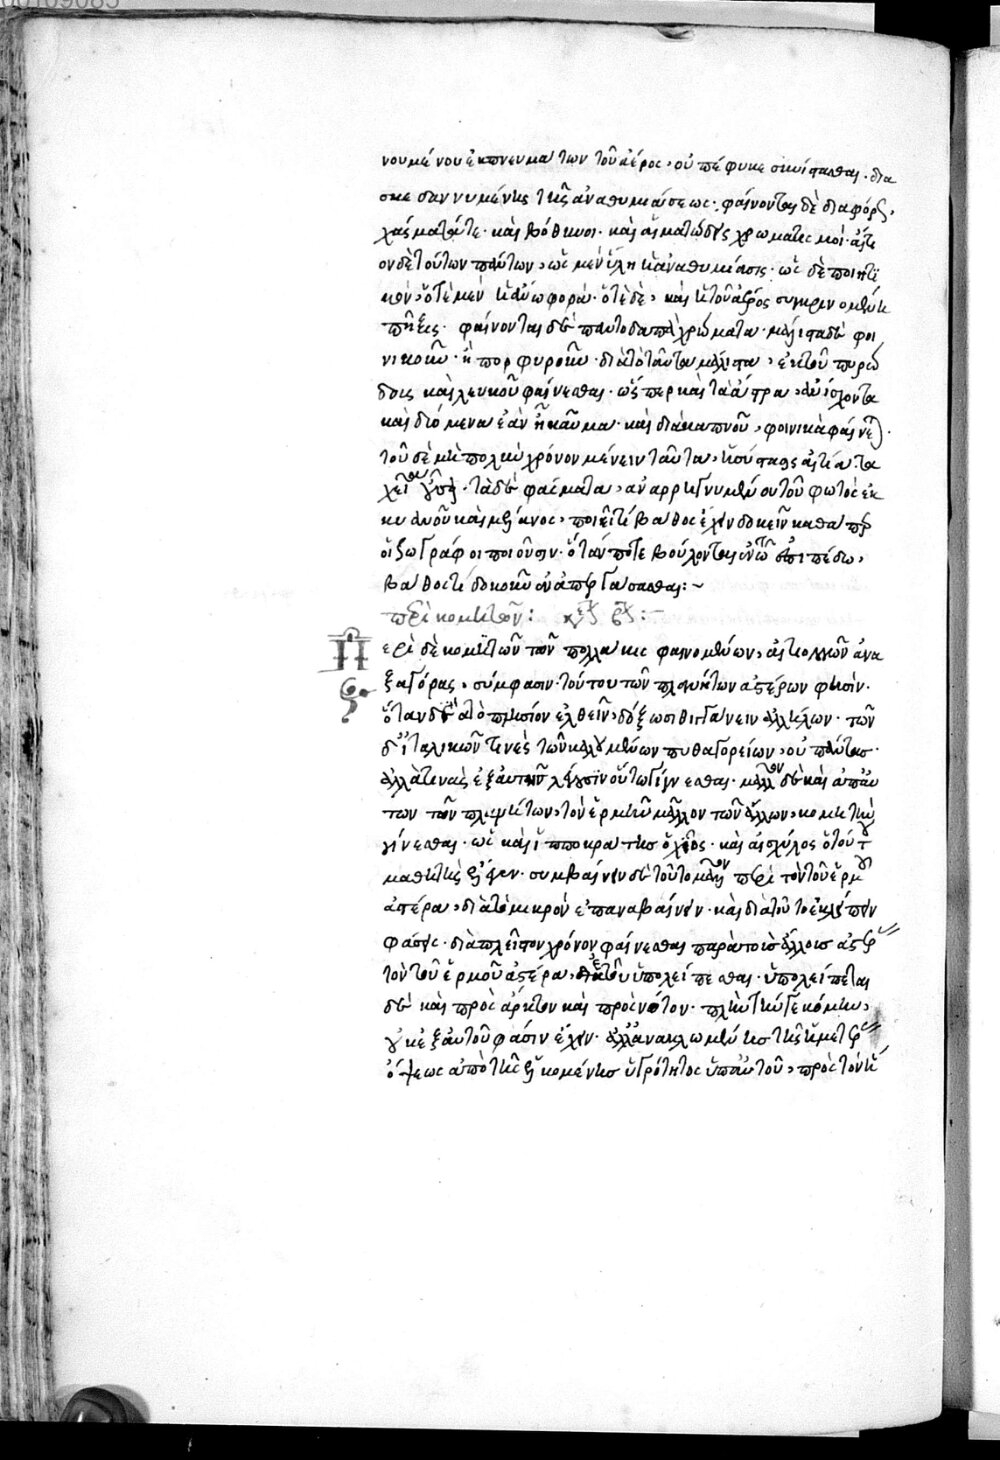 νουμένου ἐκπνευμάτων τοῦ ἀέρος, οὐ πέφυκε συνίστασθαι. δια
σκεδαννυμένης τῆς ἀναθυμιάσεως. φαίνονται δὲ διαφόρως,
χάσματά τε. καὶ βόθυνοι. καὶ αἱματώδεις χρωματισμοί. αἴτι
ον δὲ τούτων πάντων, ὡς μὲν ὕλη ἡ ἀναθυμίασις. ὡς δὲ ποιητι
κὸν, ὁτὲ μὲν ἡ ἄνω φορά. ὁτὲ δὲ, καὶ ἡ τοῦ ἀέρος συγκρινομένη
πῆξις. φαίνονται δὲ παντοδαπὰ χρώματα. μάλιστα δὲ φοι
νικοῦν. ἢ πορφυροῦν. διὰ τὸ ταῦτα μάλιστα, ἐκ τοῦ πυρώ
δους καὶ λευκοῦ φαίνεσθαι. ὥσπερ καὶ τὰ ἄστρα, ἀνίσχοντα
καὶ δυόμενα ἐὰν ᾖ καῦμα. καὶ διὰ καπνοῦ, φοινικᾶ φαίνεται.
τοῦ δὲ μὴ πολὺν χρόνον μένειν ταῦτα, ἡ σύστασις αἰτία τα
χεῖα οὖσα. τὰ δὲ φάσματα, ἀναρρηγνυμένου τοῦ φωτὸς ἐκ
κυανοῦ καὶ μέλανος, ποιεῖ τι βάθος ἔχειν δοκεῖν καθάπερ
οἱ ζωγράφοι ποιοῦσιν. ὅταν ποτε βούλονται ἐν τῷ ἐπιπέδω,
βάθος τι δοκοῦν ἀναπεργάσασθαι:~
περὶ κομητῶν:
Περὶ δὲ κομητῶν τῶν πολλάκις φαινομένων,
ξαγόρας, σύμφασιν τούτου τῶν πλανήτων ἀστέρων φησίν.
ὅταν διὰ τὸ πλησίον ἐλθεῖν, δόξωσι θιγγάνειν ἀλλήλων. τῶν
δ' ἰταλικῶν τινὲς τῶν καλουμένων πυθαγορείων, οὐ πάντας.
ἀλλά τινας ἐξ αὐτῶν λέγουσιν οὕτω γίνεσθαι. μᾶλλον δὲ καὶ ἁπάν
των τῶν πλανήτων, τὸν ἑρμῆν μᾶλλον τῶν ἄλλων, κομήτην
γίνεσθαι. ὡς καὶ ἱπποκράτης ὁ χῖος. καὶ αἰσχύλος ὁ τούτου
μαθητὴς ἔλεγεν. συμβαίνειν δὲ τοῦτο μᾶλλον περὶ τὸν τοῦ ἑρμοῦ
ἀστέρα, διὰ τὸ μικρὸν ἐπαναβαίνειν. καὶ διὰ τοῦτο ἐκλείπειν
φάσεις. διὰ πλείστον χρόνον φαίνεσθαι παρὰ τοὺς ἄλλους ἀστέρας
τὸν τοῦ ἑρμοῦ ἀστέρα, ὑπολείπεσθαι. ὑπολείπεται
δὲ καὶ πρὸς ἄρκτον καὶ πρὸς νότον. πλὴν τήν γε κόμην,
οὐκ ἐξ αὐτοῦ φασὶν ἔχειν. ἀλλ' ἀνακλωμένης τῆς ἡμετέρας
ὄψεως ἀπὸ τῆς ἑλκομένης ὑγρότητος ὑπ' αὐτοῦ, πρὸς τὸν ἥ